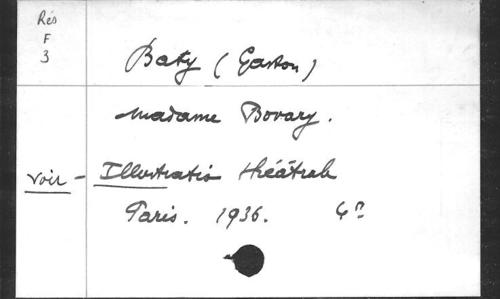 Rés
F
3
Baty (Gaston)
Madame Bovary.
voir - Illustratio théâtrale
Paris. 1936. 4°